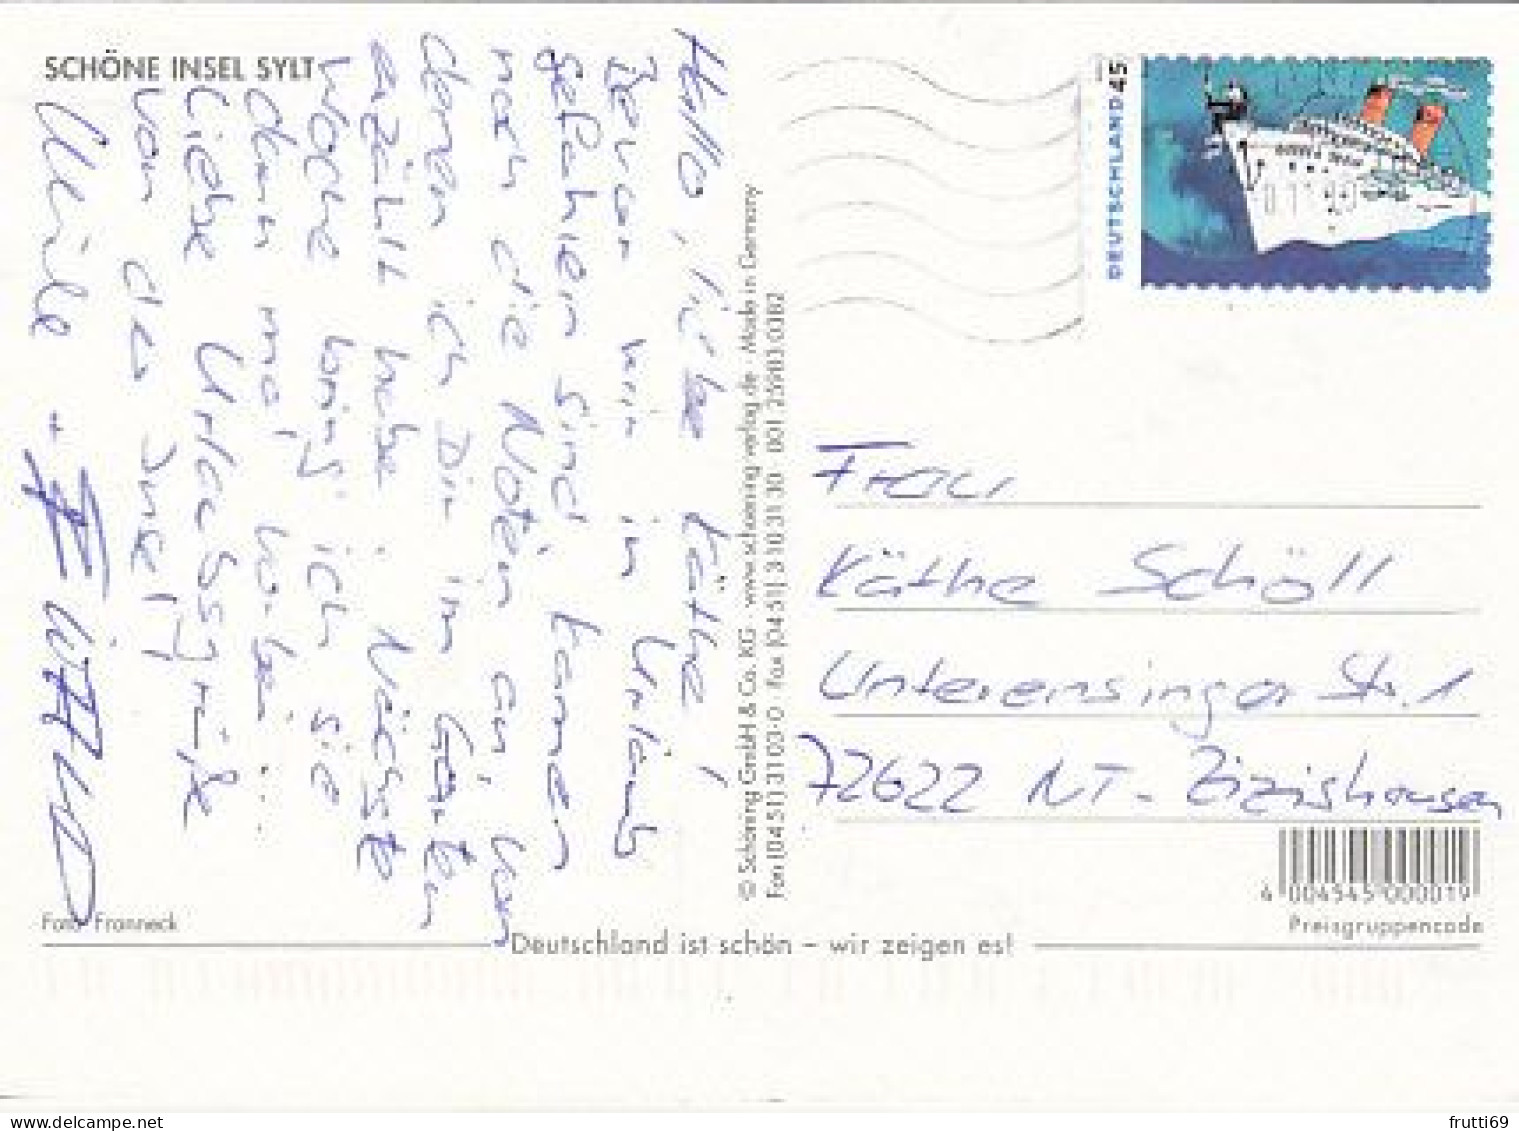 SCHÖNE INSEL SYLT
Hallo, liebe Käthe,
Bevor wir in Urlaub
gefahren sind, kamen
noch die Noten an, von
denen ich Dir im Garten
erzählt habe. Nächste
Woche bring' ich sie
dann mal vorbei...
Liebe Urlaubsgrüße
von der Insel!
© Schöning GmbH & Co. KG · www.schoening-verlag.de · Made in Germany
Fon (0451) 3 10 3-0 · Fax (0451) 3 10 31 30
DEUTSCHLAND 45
Frau
Käthe Schöll
Unterensinger Str. 1
72622 NT-Zizishausen
4 004545 000019
Preisgruppencode
Foto: Fronneck
Deutschland ist schön – wir zeigen es!
frutti69